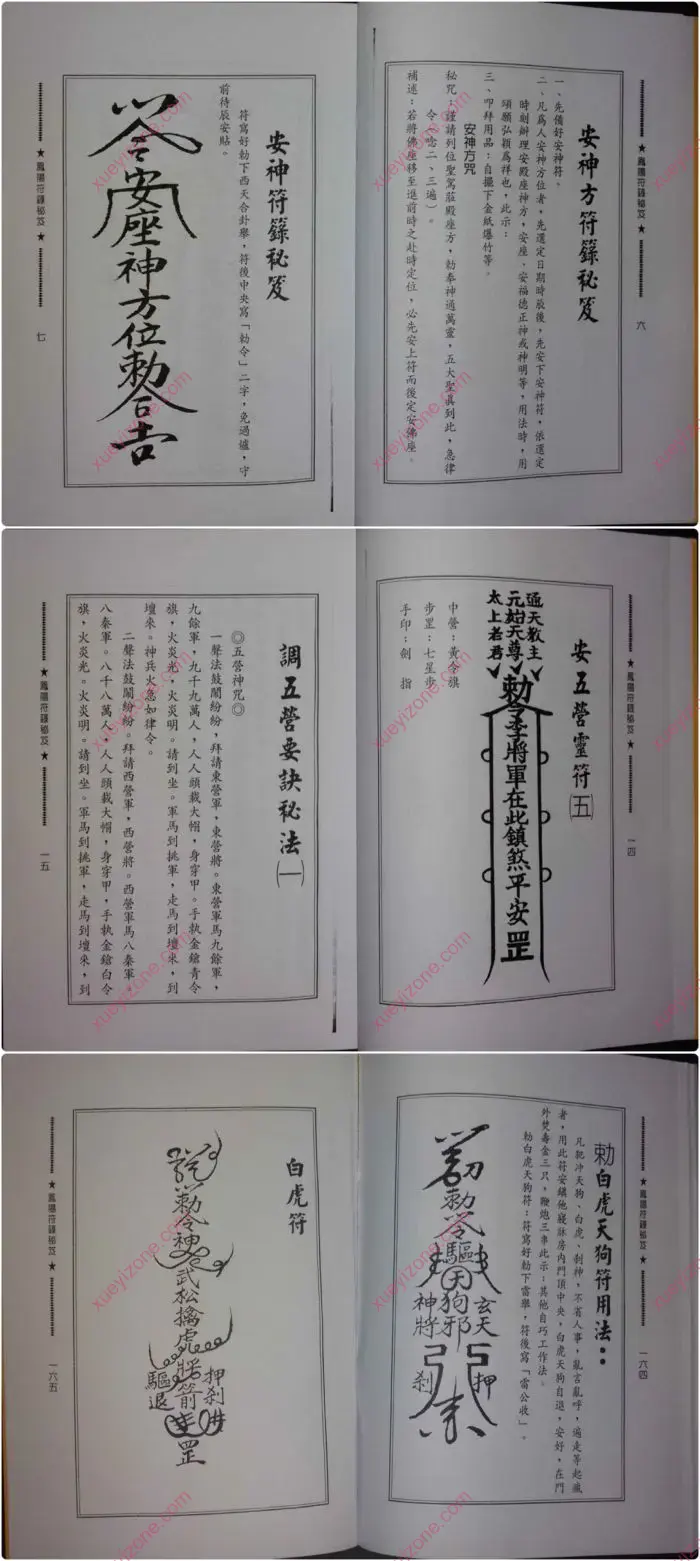 安神方符籙秘笈
一、先備好安神符、
二、凡為人安神方位者，先選定日期時辰後，先安下安神符，依選定
時刻辦理安殿座神方，安座、安福德正神或神明等，用法時，用
項願弘穎為祥也，此示：
三、叩拜用品：自攞下金紙爆竹等。
安神方咒
秘咒：謹請列位聖駕莊殿座方，勅奉神通萬靈，五大聖真到此，急律
令（唸二、三遍）。
補述：若將佛座移至進前時之赴時定位，必先安上符而後定安佛座。
★鳳陽符籙秘笈★
六
安神符籙秘笈
符寫好勅下西天合卦舉，符後中央寫「勅令」二字，免過爐，守
前待辰安貼。
安座神方位勅合吉
★鳳陽符籙秘笈★
七
安五營靈符(五)
通天教主
元始天尊
太上老君
勅令李將軍在此鎮煞平安罡
中營：黃令旗
步罡：七星步
手印：劍 指
★鳳陽符籙秘笈★
一四
調五營要訣秘法(一)
◎五營神咒◎
一聲法鼓鬧紛紛，拜請東營軍，東營將。東營軍馬九餘軍，
九餘軍，九千九萬人，人人頭載大帽，身穿甲。手執金鎗青令
旗，火炎光，火炎明。請到坐。軍馬到挑軍，走馬到壇來，到
壇來。神兵火急如律令。
二聲法鼓鬧紛紛。拜請西營軍，西營將。西營軍馬八秦軍。
八秦軍。八千八萬人，人人頭載大帽，身穿甲，手執金鎗白令
旗，火炎光。火炎明。請到坐。軍馬到挑軍，走馬到壇來，到
★鳳陽符籙秘笈★
一五
勅白虎天狗符用法：
凡犯沖天狗、白虎、刹神，不省人事，亂言亂呼，遍走等起瘋
者，用此符安鎮他寢牀房內門頂中央，白虎天狗自退，安好，在門
外焚壽金三只，鞭炮三串此示：其他自巧工作法。
勅白虎天狗符：符寫好勅下雷舉，符後寫「雷公收」。
勅令驅天狗邪
玄天
神將
押
刹
★鳳陽符籙秘笈★
一六四
白虎符
勅令神武松擒虎將箭罡
押刹
驅退
★鳳陽符籙秘笈★
一六五
xueyizone.com
xueyizone.com
xueyizone.com
xueyizone.com
xueyizone.com
xueyizone.com
xueyizone.com
xueyizone.com
xueyizone.com
xueyizone.com
xueyizone.com
xueyizone.com